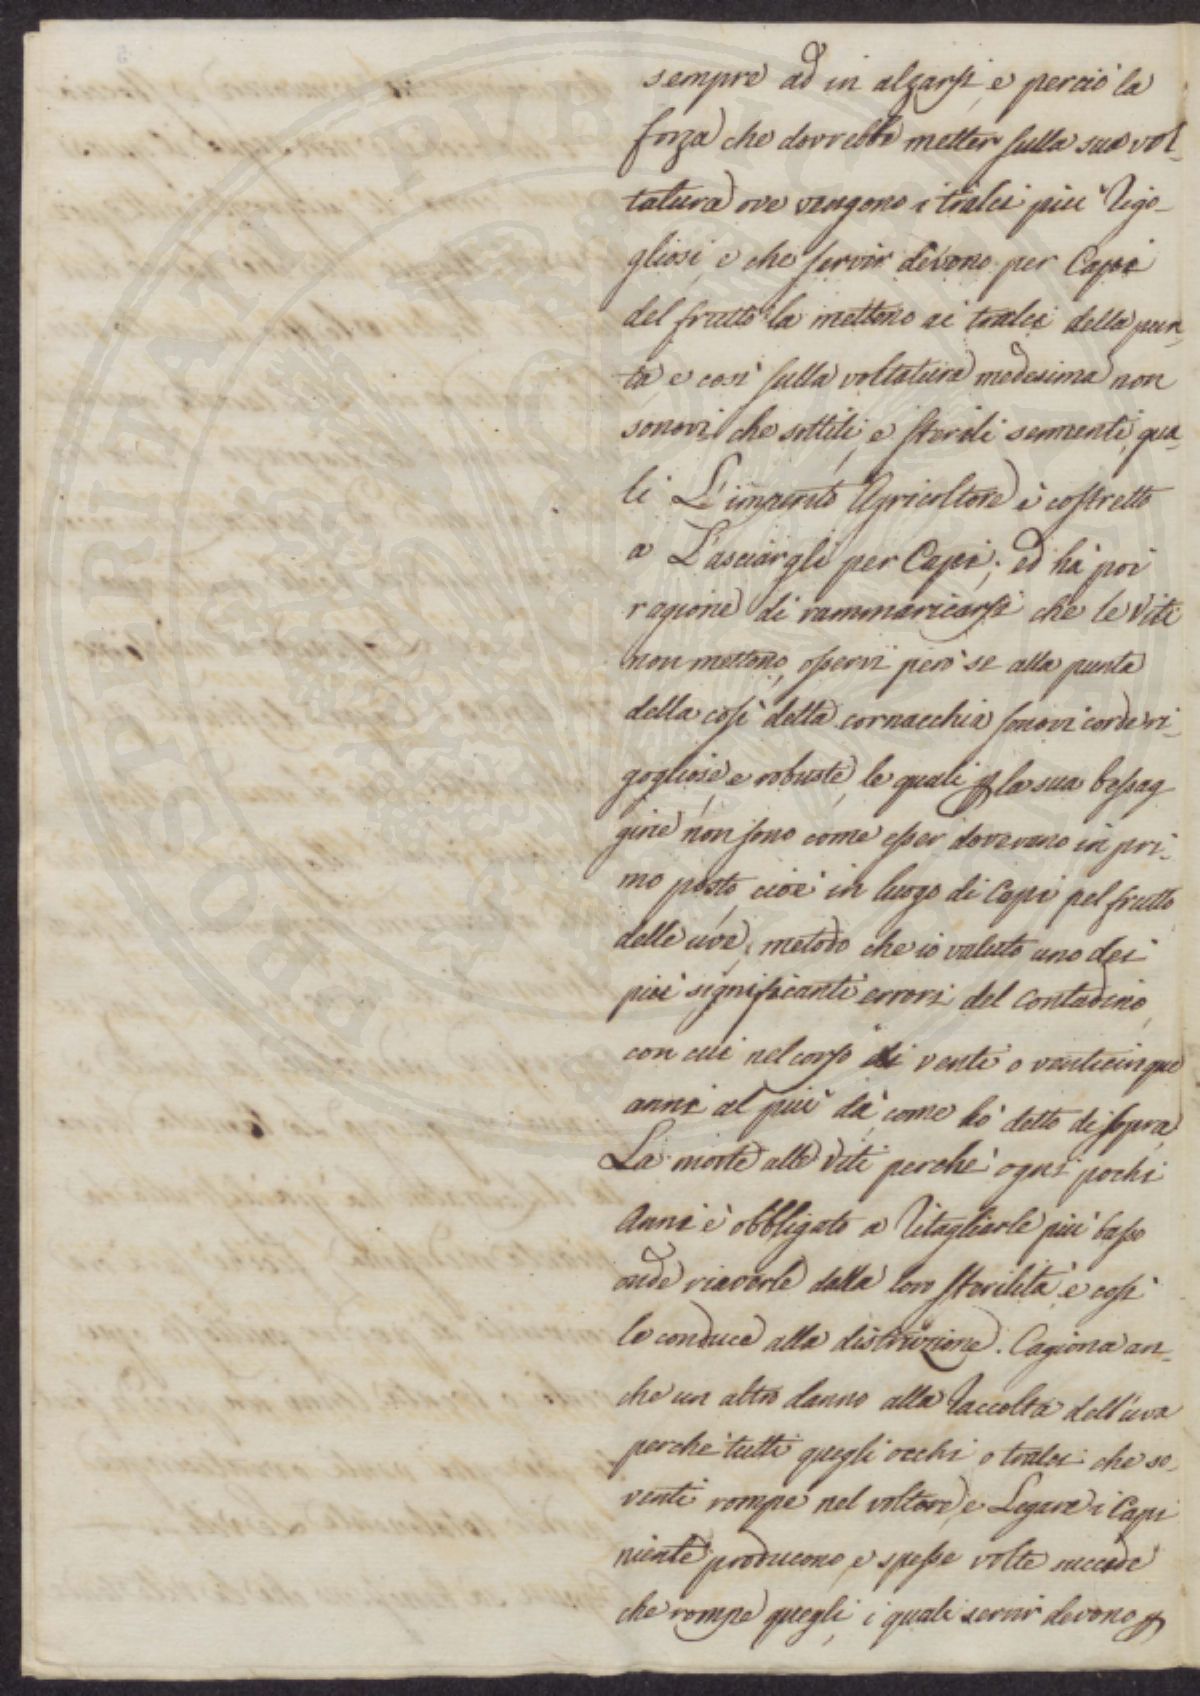 sempre ad in alzarsi, e perciò la
forza che dovrebbe metter sulla sua vol-
tatura ove vengono i tralci più rigo-
gliosi, e che servir devono per Capi
del frutto la mettono ai tralci della pun-
ta e così sulla voltatura medesima non
sonovi che sottili, e sterili sermenti, qua-
li L'imperito Agricoltore è costretto
a L'asciargli per Capi; ed hà poi
ragione di rammaricarsi che le Viti
non mettono, osservi però se alla punta
della così detta cornacchia sonovi corde ri-
gogliose e robuste, le quali p la sua bessag
gine non sono come esser dovevano in pri-
mo posto, cioè in luogo di Capi pel frutto
delle uve, metodo che io valuto uno dei
più significanti errori del Contadino,
con cui nel corso di venti o venticinque
anni al più dà, come hò detto di sopra,
La morte alle Viti perchè ogni pochi
Anni è obbligato a ritagliarle più basso
onde riaverle dalla loro sterilità, e così
le conduce alla distruzione. Cagiona an-
che un altro danno alla raccolta dell'uva
perchè tutti quegli occhi o tralci che so-
venti rompe nel voltare, e Legare i Capi
niente producono, e spesse volte succede
che rompe quegli, i quali servir devono p
POSTERITATI PUBLICAE